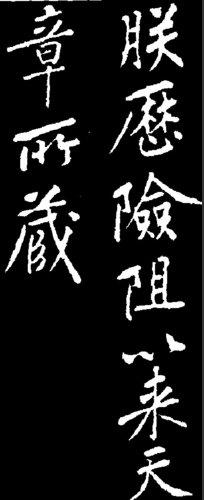 朕歷險阻以来天
章所蔵